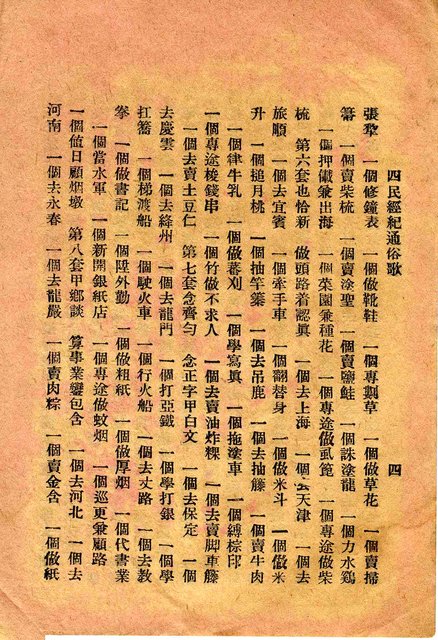 四民經紀通俗歌 四
張犂 一個修鐘表 一個做靴鞋 一個專劃草 一個做草花 一個賣掃
箒 一個賣柴梳 一個賣塗聖 一個賣鹽鮭 一個誅塗龍 一個力水鷄
一個押儎兼出海 一個菜園兼種花 一個專途做虱篦 一個專途做柴
梳 第六套也恰新 做頭路着認眞 一個去上海 一個去天津 一個去
旅順 一個去宜賓 一個牽手車 一個翻替身 一個做米斗 一個做米
升 一個搥月桃 一個抽竿蓁 一個去吊鹿 一個去抽籐 一個賣牛肉
一個律牛乳 一個做蕃刈 一個學寫眞 一個拖塗車 一個縛棕印
一個專途梭錢串 一個竹做不求人 一個去賣油炸粿 一個去賣脚車藤
一個去賣土豆仁 第七套念齊勻 念正字甲白文 一個去保定 一個
去慶雲 一個去絳州 一個去龍門 一個打亞鐵 一個學打銀 一個學
扛籥 一個梯渡船 一個駛火車 一個行火船 一個去丈路 一個去教
拳 一個做書記 一個陞外勤 一個做粗紙 一個做厚烟 一個代書業
一個當水軍 一個新開銀紙店 一個專途做蚊烟 一個巡更兼顧路
一個値日顧烟墩 第八套甲鄉談 算事業攏包含 一個去河北 一個去
河南 一個去永春 一個去龍巖 一個賣肉粽 一個賣金含 一個做紙